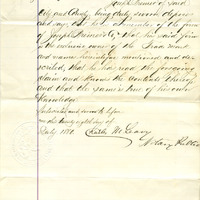 of said
City and County, being duly sworn deposes
and says, that he is a member of the firm
of Joseph & Co, that said firm
is the exclusive owner of the Trade Mark
and name mentioned and des-
cribed, that he has read the foregoing
claim and knows the contents thereof
and that the same is true of his own
knowledge
Subscribed and sworn to before
me this twenty eighth day of
July 1880.
Notary Public